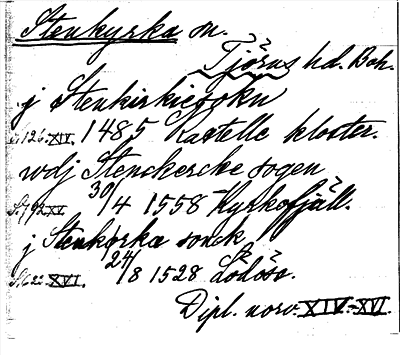 Stenkyrka sn.
Tjörns hd. Boh.
j Stenkirkiesokn
S. 126. XIV. 1485 Kastelle kloster.
wdj Stenckercke sogen
S. 792 XI. 30/4 1558 Kyrkofjäll.
j Stenkyrka sonck
XVI. 24/8 1528 Lödöse.
Dipl. norv. XIV-XVI.